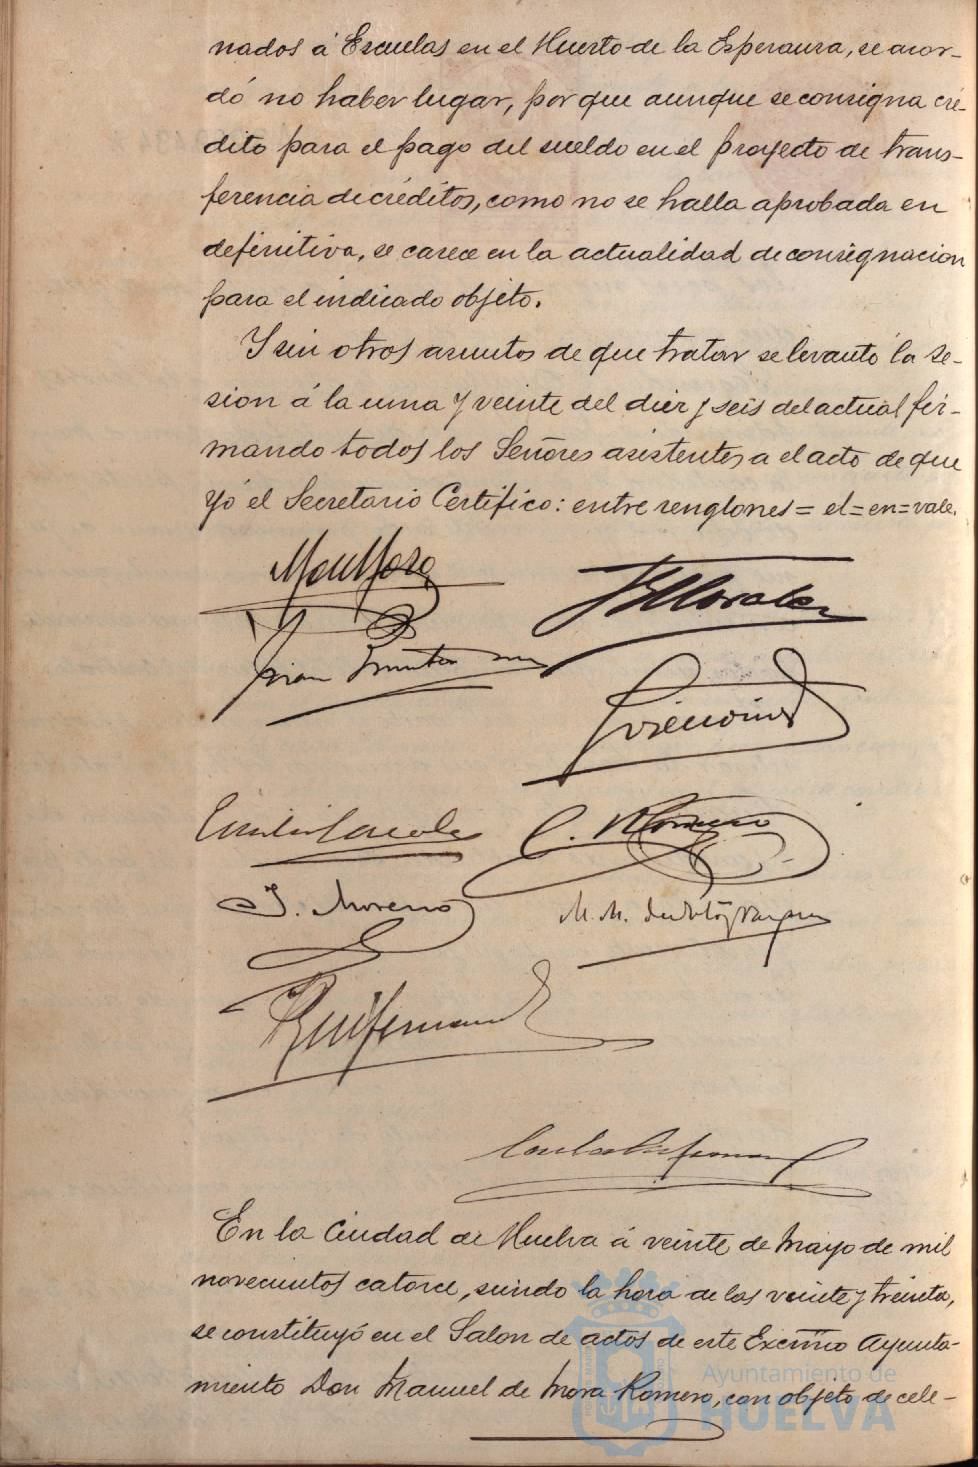 nados á Escuelas en el Huerto de la Esperanza, se acor-
dó no haber lugar, por que aunque se consigna cré-
dito para el pago del sueldo en el proyecto de trans-
ferencia de créditos, como no se halla aprobada en
definitiva, se carece en la actualidad de consignacion
para el indicado objeto.
Y sin otros asuntos de que tratar se levantó la se-
sion á la una y veinte del diez y seis del actual fir-
mando todos los Señores asistentes a el acto de que
yó el Secretario Certifico: entre renglones = el = en = vale.
J. Moreno
En la Ciudad de Huelva á veinte de Mayo de mil
novecientos catorce, siendo la hora de las veinte y treinta,
se constituyó en el Salon de actos de este Excmo Ayunta-
miento Don Manuel de Mora Romero, con objeto de cele-
Ayuntamiento de
HUELVA